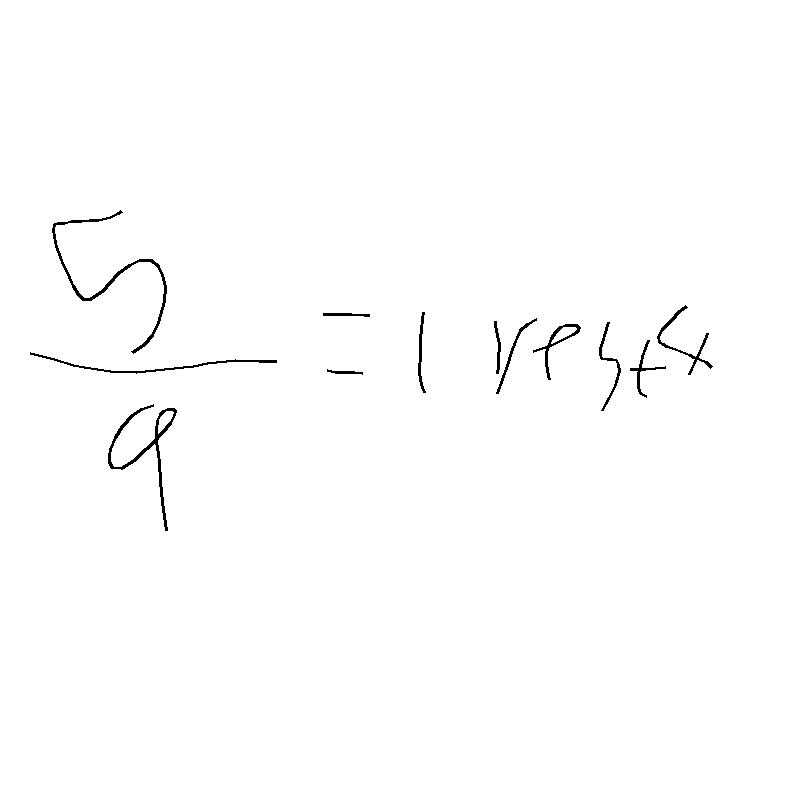 5/9 = 1 rest 4